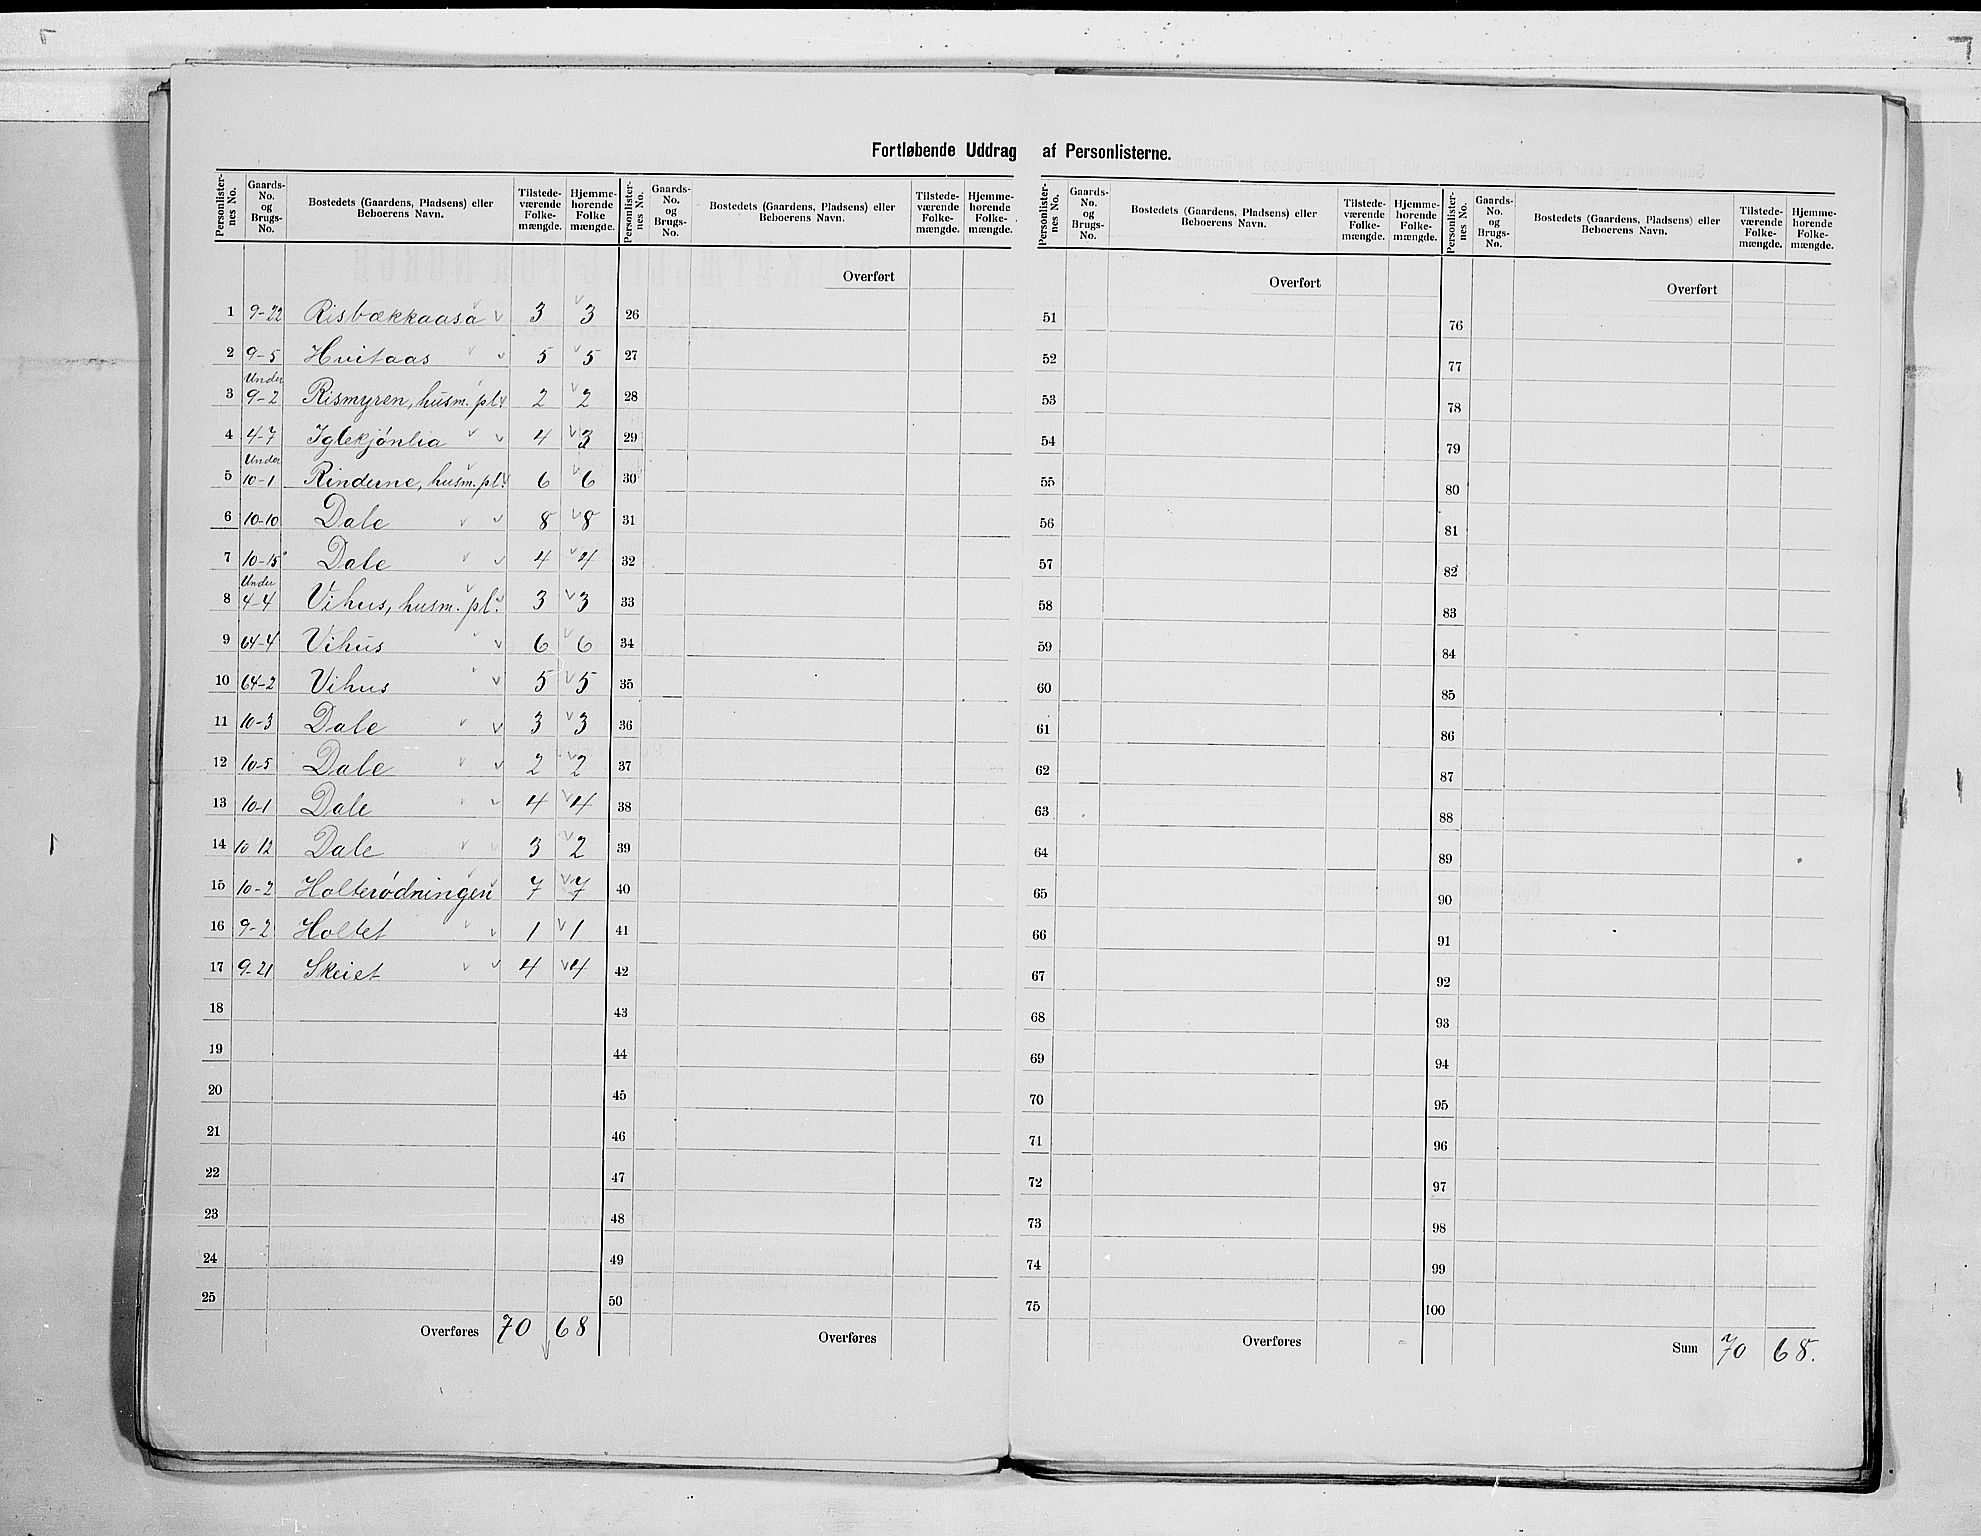 Fortløbende Uddrag af Personlisterne.
Personlister-nes No. Gaards-No. og Brugs-No. Bostedets (Gaardens, Pladsens) eller Beboerens Navn. Tilstede-værende Folke-mængde. Hjemme-hørende Folke mængde.
1 9-22 Risbækkaasa v 3 v 3
2 9-5 Hvitaas v v 5 v 5
3 Under 9-2 Rismyren, husm. pl. v 2 v 2
4 4-7 Iglekjönlia v v 4 v 3
5 Under 10-1 Rinderne, husm. pl. v 6 v 6
6 10-10 Dale v v 8 v 8
7 10-15 Dale v v 4 v 4
8 Under 4-4 Vihus, husm. pl. v 3 v 3
9 64-4 Vihus v 6 v 6
10 64-2 Vihus v 5 v 5
11 10-3 Dale v v 3 v 3
12 10-5 Dale v v 2 v 2
13 10-1 Dale v v 4 v 4
14 10 12 Dale v v 3 v 2
15 10-2 Holterødningen v 7 v 7
16 9-2 Holtet v v 1 v 1
17 9-21 Skeiet v v 4 v 4
18
19
20
21
22
23
24
25
Overføres 70 68
Personlister-nes No. Gaards-No. og Brugs-No. Bostedets (Gaardens, Pladsens) eller Beboerens Navn. Tilstede-værende Folke-mængde. Hjemme-hørende Folke-mængde.
Overført
26
27
28
29
30
31
32
33
34
35
36
37
38
39
40
41
42
43
44
45
46
47
48
49
50
Overføres
Personlister-nes No. Gaards-No. og Brugs-No. Bostedets (Gaardens, Pladsens) eller Beboerens Navn. Tilstede-værende Folke-mængde. Hjemme-hørende Folke-mængde.
Overført
51
52
53
54
55
56
57
58
59
60
61
62
63
64
65
66
67
68
69
70
71
72
73
74
75
Overføres
Personlister-nes No. Gaards-No. og Brugs-No. Bostedets (Gaardens, Pladsens) eller Beboerens Navn. Tilstede-værende Folke-mængde. Hjemme-hørende Folke-mængde.
Overført
76
77
78
79
80
81
82
83
84
85
86
87
88
89
90
91
92
93
94
95
96
97
98
99
100
Sum 70 68.